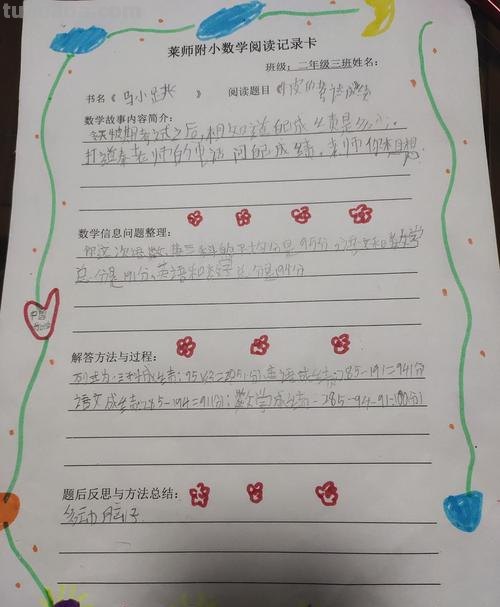 莱师附小数学阅读记录卡
班级：二年级三班姓名：
书名《马小跳》 阅读题目《 皮的考试成绩
数学故事内容简介：
期考试之后，想知道 的成绩是多少。
打 老师的电话问 成绩。老师 你想想
数学信息问题整理：
次语数英三科的平均分是95分，语文和数学
总分是191分，英语和数学总分是194分
解答方法与过程：
列式为：三科成绩：95×3=285（分）英语成绩：285-191=94（分
语文成绩285-194=91（分）；数学成绩：285-94-91=100（分）
题后反思与方法总结：
多动脑子